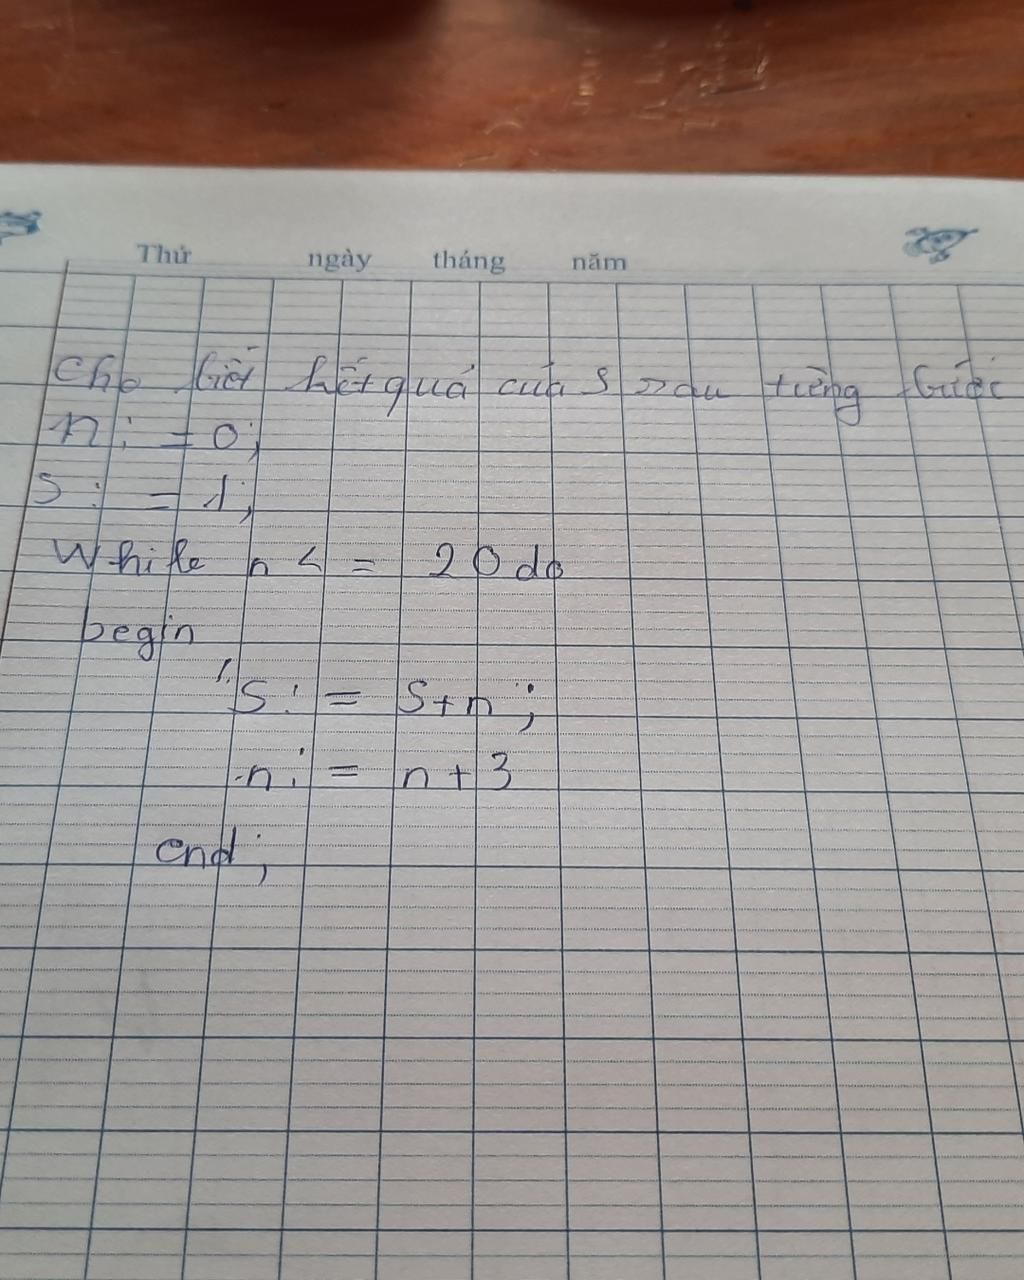 Thứ ngày tháng năm
Cho biết kết quả của S sau từng bước
n := 0;
S := 1;
While n <= 20 do
begin
S := S+n;
n := n+3
end;